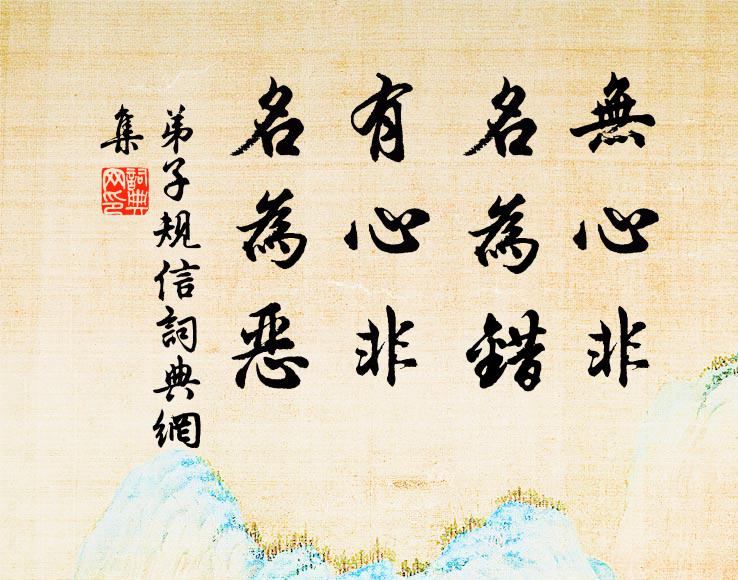 無心非
名為錯
有心非
名為惡
弟子規信詞典網
集
詞典
网印